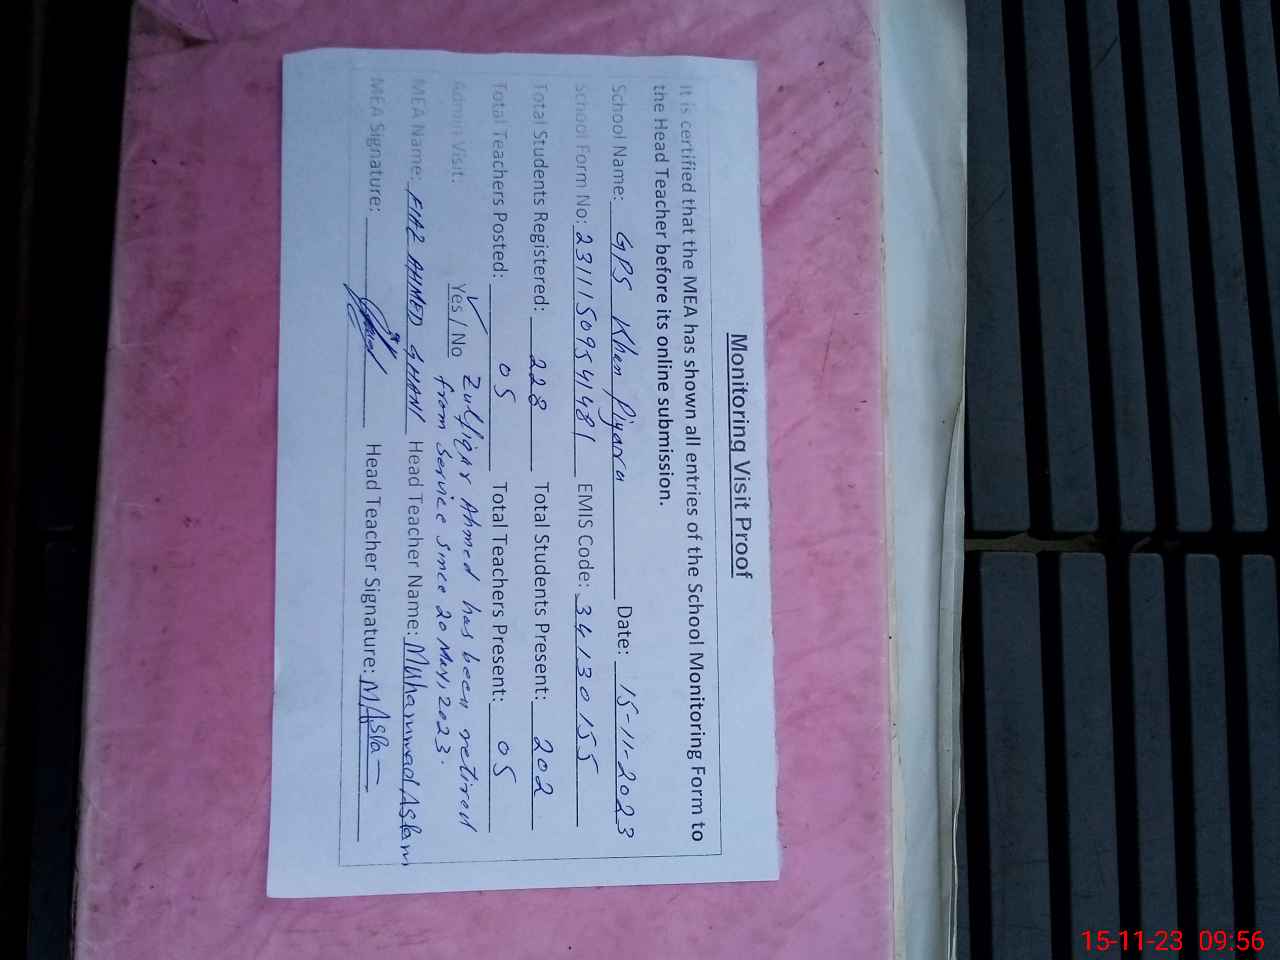 Monitoring Visit Proof
It is certified that the MEA has shown all entries of the School Monitoring Form to
the Head Teacher before its online submission.
School Name: GPS Khen Piyara Date: 15-11-2023
School Form No: 23111509541481 EMIS Code: 34130155
Total Students Registered: 228 Total Students Present: 202
Total Teachers Posted: 05 Total Teachers Present: 05
Admin Visit: Yes / No Zulfiqar Ahmed has been retired
from Service since 20 May, 2023.
MEA Name: FIAZ AHMED GHANI Head Teacher Name: Muhammad Aslam
MEA Signature: Head Teacher Signature: M Asla
15-11-23 09:56